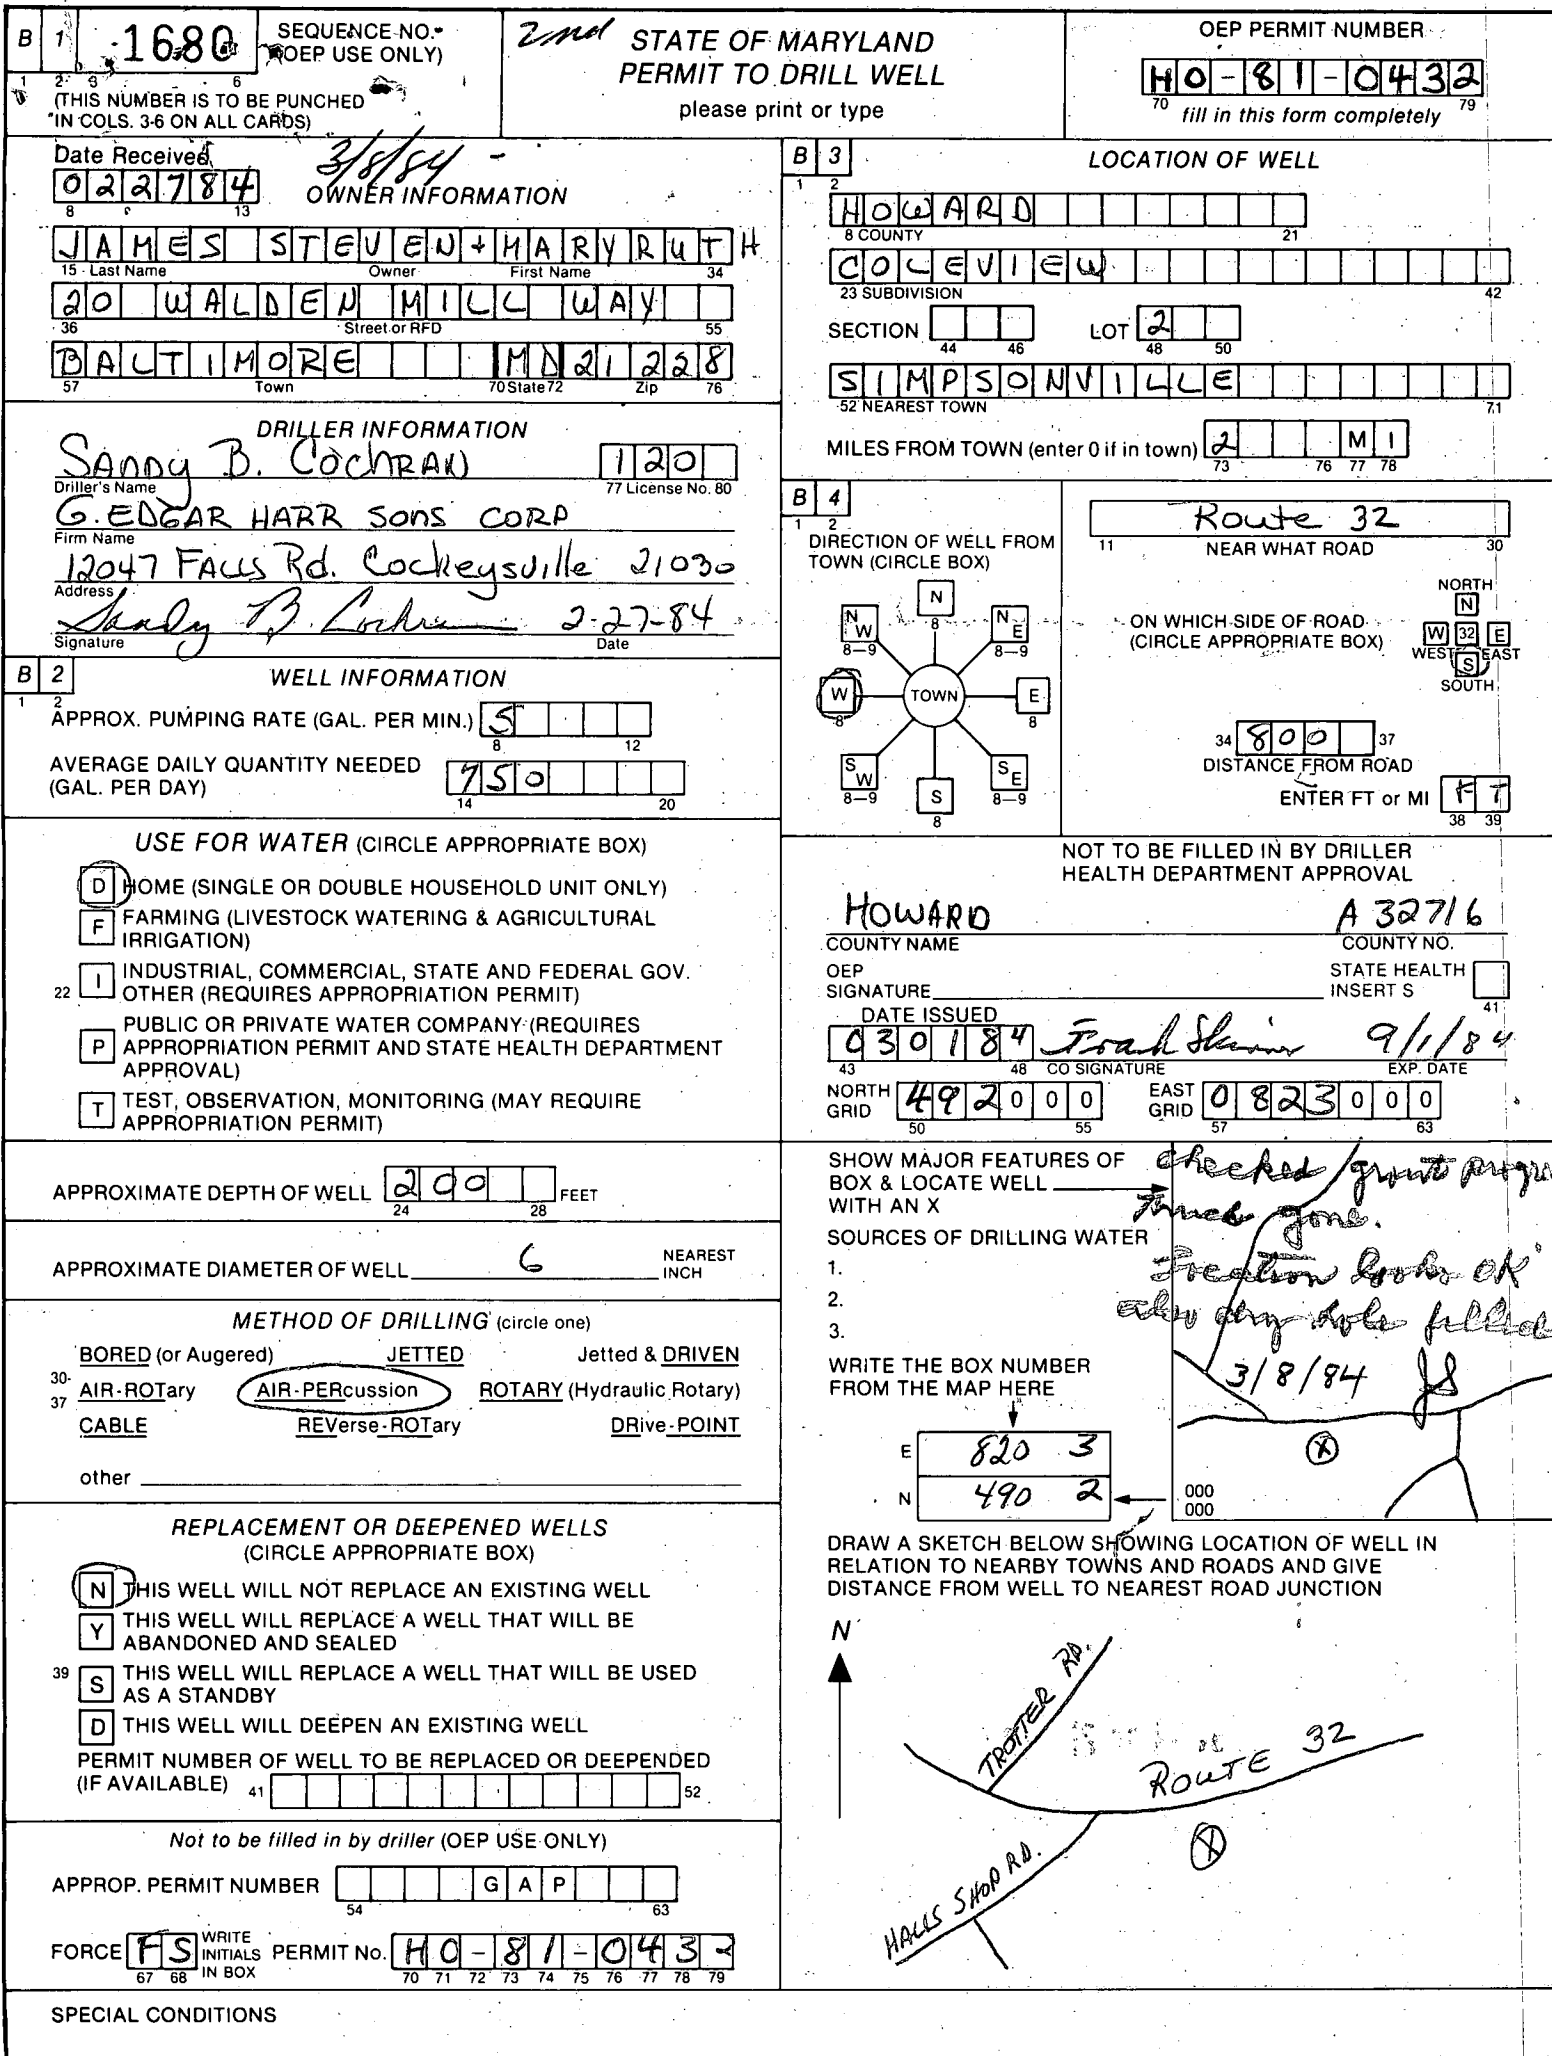 B 1 1680 SEQUENCE NO. (OEP USE ONLY)
1 2 3 6
(THIS NUMBER IS TO BE PUNCHED
IN COLS. 3-6 ON ALL CARDS)
2nd STATE OF MARYLAND
PERMIT TO DRILL WELL
please print or type
OEP PERMIT NUMBER
HO-81-0432
70 79
fill in this form completely
Date Received 3/8/84
022784
8 13
OWNER INFORMATION
JAMES STEVEN + MARYRUTH
15 - Last Name Owner First Name 34
20 WALDEN MILL WAY
36 Street or RFD 55
BALTIMORE MD 21228
57 Town 70 State 72 Zip 76
DRILLER INFORMATION
SANDY B. COCHRAN 120
Driller's Name 77 License No. 80
G. EDGAR HARR SONS CORP
Firm Name
12047 FALLS Rd. Cockeysville 21030
Address
Sandy B. Cochran 2-27-84
Signature Date
B 2 WELL INFORMATION
1 2
APPROX. PUMPING RATE (GAL. PER MIN.) 5
8 12
AVERAGE DAILY QUANTITY NEEDED
(GAL. PER DAY) 750
14 20
USE FOR WATER (CIRCLE APPROPRIATE BOX)
D HOME (SINGLE OR DOUBLE HOUSEHOLD UNIT ONLY)
F FARMING (LIVESTOCK WATERING & AGRICULTURAL
IRRIGATION)
22 I INDUSTRIAL, COMMERCIAL, STATE AND FEDERAL GOV.
OTHER (REQUIRES APPROPRIATION PERMIT)
P PUBLIC OR PRIVATE WATER COMPANY (REQUIRES
APPROPRIATION PERMIT AND STATE HEALTH DEPARTMENT
APPROVAL)
T TEST, OBSERVATION, MONITORING (MAY REQUIRE
APPROPRIATION PERMIT)
APPROXIMATE DEPTH OF WELL 200 FEET
24 28
APPROXIMATE DIAMETER OF WELL 6 NEAREST
INCH
METHOD OF DRILLING (circle one)
BORED (or Augered) JETTED Jetted & DRIVEN
30-37 AIR-ROTary AIR-PERcussion ROTARY (Hydraulic Rotary)
CABLE REVerse-ROTary DRive-POINT
other
REPLACEMENT OR DEEPENED WELLS
(CIRCLE APPROPRIATE BOX)
N THIS WELL WILL NOT REPLACE AN EXISTING WELL
Y THIS WELL WILL REPLACE A WELL THAT WILL BE
ABANDONED AND SEALED
39 S THIS WELL WILL REPLACE A WELL THAT WILL BE USED
AS A STANDBY
D THIS WELL WILL DEEPEN AN EXISTING WELL
PERMIT NUMBER OF WELL TO BE REPLACED OR DEEPENDED
(IF AVAILABLE) 41 52
Not to be filled in by driller (OEP USE ONLY)
APPROP. PERMIT NUMBER GAP
54 63
FORCE FS WRITE INITIALS IN BOX PERMIT No. HO-81-0432
67 68 70 71 72 73 74 75 76 77 78 79
SPECIAL CONDITIONS
B 3 LOCATION OF WELL
1 2
HOWARD
8 COUNTY 21
COLEVIEW
23 SUBDIVISION 42
SECTION LOT 2
44 46 48 50
SIMPSONVILLE
52 NEAREST TOWN 71
MILES FROM TOWN (enter 0 if in town) 2 MI
73 76 77 78
B 4
1 2
DIRECTION OF WELL FROM
TOWN (CIRCLE BOX)
N
8
NW NE
8-9 8-9
W TOWN E
8 8
SW SE
8-9 8-9
S
8
Route 32
11 NEAR WHAT ROAD 30
ON WHICH SIDE OF ROAD
(CIRCLE APPROPRIATE BOX)
NORTH
N
W 32 E
WEST EAST
S
SOUTH
34 800 37
DISTANCE FROM ROAD
ENTER FT or MI FT
38 39
NOT TO BE FILLED IN BY DRILLER
HEALTH DEPARTMENT APPROVAL
HOWARD A 32716
COUNTY NAME COUNTY NO.
OEP
SIGNATURE
STATE HEALTH
INSERT S
41
DATE ISSUED
030184 Frank Skinner 9/1/84
43 48 CO SIGNATURE EXP. DATE
NORTH GRID 492000 EAST GRID 0823000
50 55 57 63
SHOW MAJOR FEATURES OF
BOX & LOCATE WELL
WITH AN X
SOURCES OF DRILLING WATER
1.
2.
3.
checked grout
truck gone.
Location looks OK
also dry hole filled
3/8/84 JS
X
WRITE THE BOX NUMBER
FROM THE MAP HERE
E 820 3
N 490 2
000
000
DRAW A SKETCH BELOW SHOWING LOCATION OF WELL IN
RELATION TO NEARBY TOWNS AND ROADS AND GIVE
DISTANCE FROM WELL TO NEAREST ROAD JUNCTION
N
TROTTER RD.
ROUTE 32
X
HALLS SHOP RD.